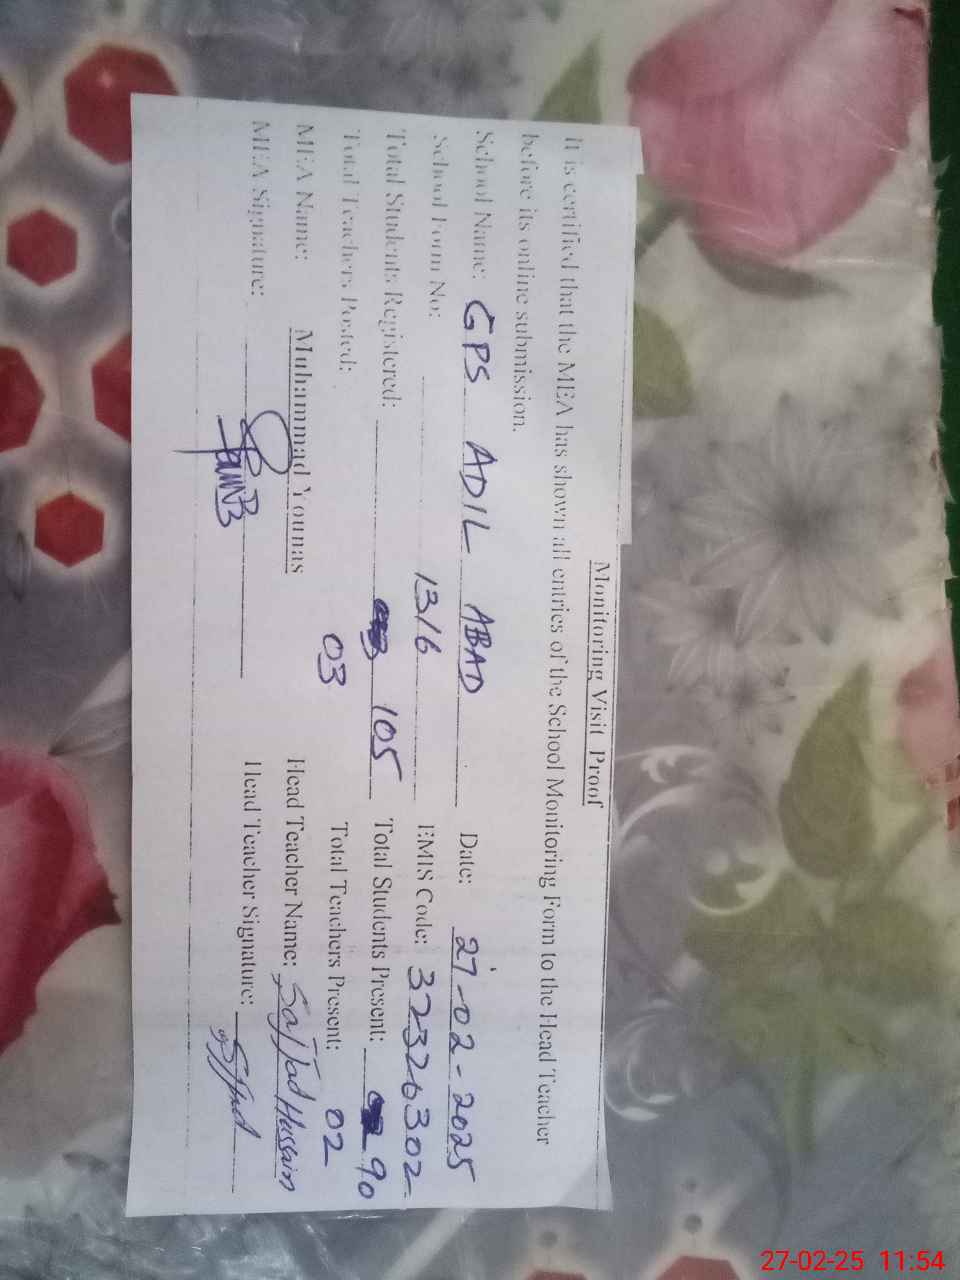 Monitoring Visit Proof
It is certified that the MEA has shown all entries of the School Monitoring Form to the Head Teacher
before its online submission.
School Name: GPS ADIL ABAD Date: 27-02-2025
School Form No: 1316 EMIS Code: 32326302
Total Students Registered: 105 Total Students Present: 90
Total Teachers Posted: 03 Total Teachers Present: 02
MEA Name: Muhammad Younas Head Teacher Name: Sajjad Hussain
MEA Signature: Head Teacher Signature:
27-02-25 11:54